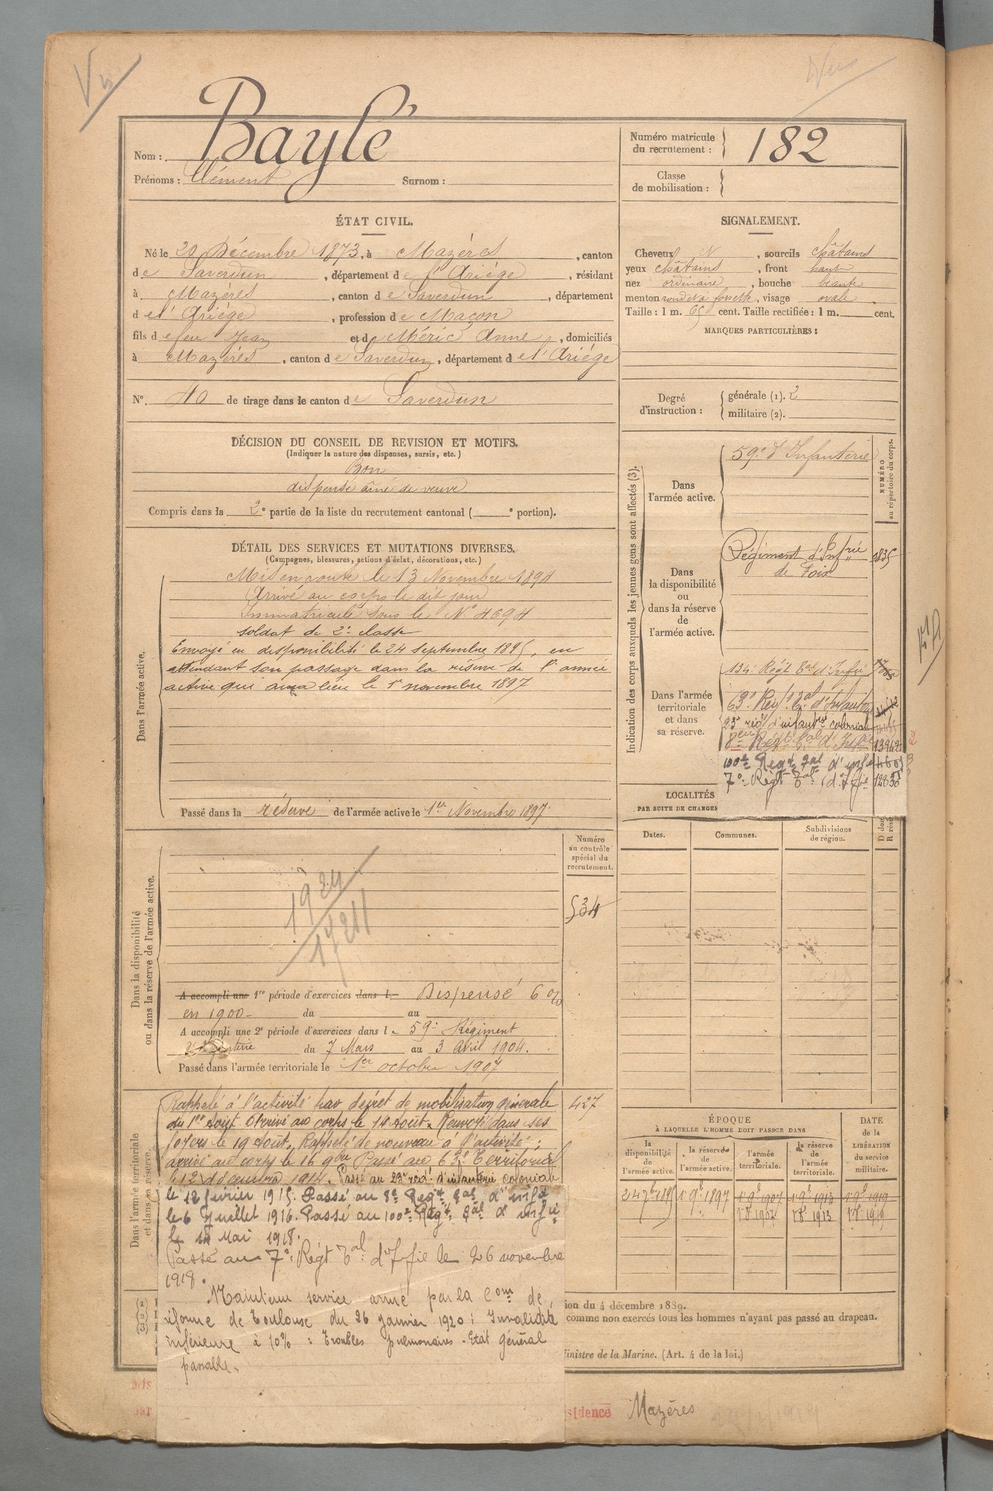 Vu
Nom : Baylé
Prénoms : Clément Surnom :
Numéro matricule du recrutement : 182
Classe de mobilisation :
ÉTAT CIVIL.
Né le 20 Décembre 1873, à Mazères, canton
de Saverdun, département de l'Ariége, résidant
à Mazères, canton de Saverdun, département
de l'Ariége, profession de Maçon
fils de feu Jean et de Méric Anne, domiciliés
à Mazères, canton de Saverdun, département de l'Ariége
N° 40 de tirage dans le canton de Saverdun
SIGNALEMENT.
Cheveux N, sourcils châtains
yeux châtains, front haut
nez ordinaire, bouche
menton rond à fossette, visage ovale
Taille : 1 m. 65 cent. Taille rectifiée : 1 m. cent.
MARQUES PARTICULIÈRES :
Degré d'instruction : générale (1). 2
militaire (2).
DÉCISION DU CONSEIL DE REVISION ET MOTIFS.
(Indiquer la nature des dispenses, sursis, etc.)
Bon
dispensé aîné de veuve
Compris dans la 2e partie de la liste du recrutement cantonal ( e portion).
DÉTAIL DES SERVICES ET MUTATIONS DIVERSES.
(Campagnes, blessures, actions d'éclat, décorations, etc.)
Dans l'armée active.
Mis en route le 13 Novembre 1894
Arrivé au corps le dit jour
Immatriculé sous le N° 4694
soldat de 2e classe
Envoyé en disponibilité le 24 septembre 1895, en
attendant son passage dans la réserve de l'armée
active qui aura lieu le 1er novembre 1897
Passé dans la réserve de l'armée active le 1er Novembre 1897.
Indication des corps auxquels les jeunes gens sont affectés (3).
NUMÉRO au répertoire du corps.
Dans l'armée active.
59e d'Infanterie
Dans la disponibilité ou dans la réserve de l'armée active.
Régiment d'Infrie de Foix 1835
Dans l'armée territoriale et dans sa réserve.
134e Régt Eal d'Infie
63e Régt Eal d'Infanterie
23e régt d'infantrie coloniale
8ème Régt Eal d'Infie 13942
100e Régt Eal d'infie
7e Régt Eal d'Iffie
LOCALITÉS
PAR SUITE DE CHANGE
Dates. Communes. Subdivisions de région.
Dans la disponibilité ou dans la réserve de l'armée active.
Numéro au contrôle spécial du recrutement.
534
A accompli une 1re période d'exercices dans l Dispensé 6 %
en 1900. du au
A accompli une 2e période d'exercices dans l 59e Régiment
du 7 Mars au 3 Avril 1904.
Passé dans l'armée territoriale le 1er octobre 1907
Dans l'armée territoriale et dans sa réserve.
427
Rappelé à l'activité par décret de mobilisation générale
du 1er août. Arrivé au corps le 18 août. Renvoyé dans ses
foyers le 19 août. Rappelé de nouveau à l'activité ;
arrivé au corps le 16 9bre Passé au 63e Territorial
le 12 décembre 1914. Passé au 23e régt d'infanterie coloniale
le 12 février 1915. Passé au 8e Régt Eal d'infie
le 6 Juillet 1916. Passé au 100e Régt Eal d'infie
le Mai 1918.
Passé au 7e Régt Eal d'Iffie le 26 novembre
1918.
Maintenu service armé par la Com de
réforme de Toulouse du 26 janvier 1920 : Invalidité
inférieure à 10% : Troubles pneumoniques. Etat général
passable.
ÉPOQUE
À LAQUELLE L'HOMME DOIT PASSER DANS
la disponibilité de l'armée active.
la réserve de l'armée active.
l'armée territoriale.
la réserve de l'armée territoriale.
DATE de la LIBÉRATION du service militaire.
24 7bre 1895 1 9e 1897 1 9e 1907 1 9e 1913 1 9e 1919
1 8e 1907 1 8e 1913 1 8e 1919
ion du 4 décembre 1889.
comme non exercés tous les hommes n'ayant pas passé au drapeau.
Ministre de la Marine. (Art. 4 de la loi.)
sidence Mazères